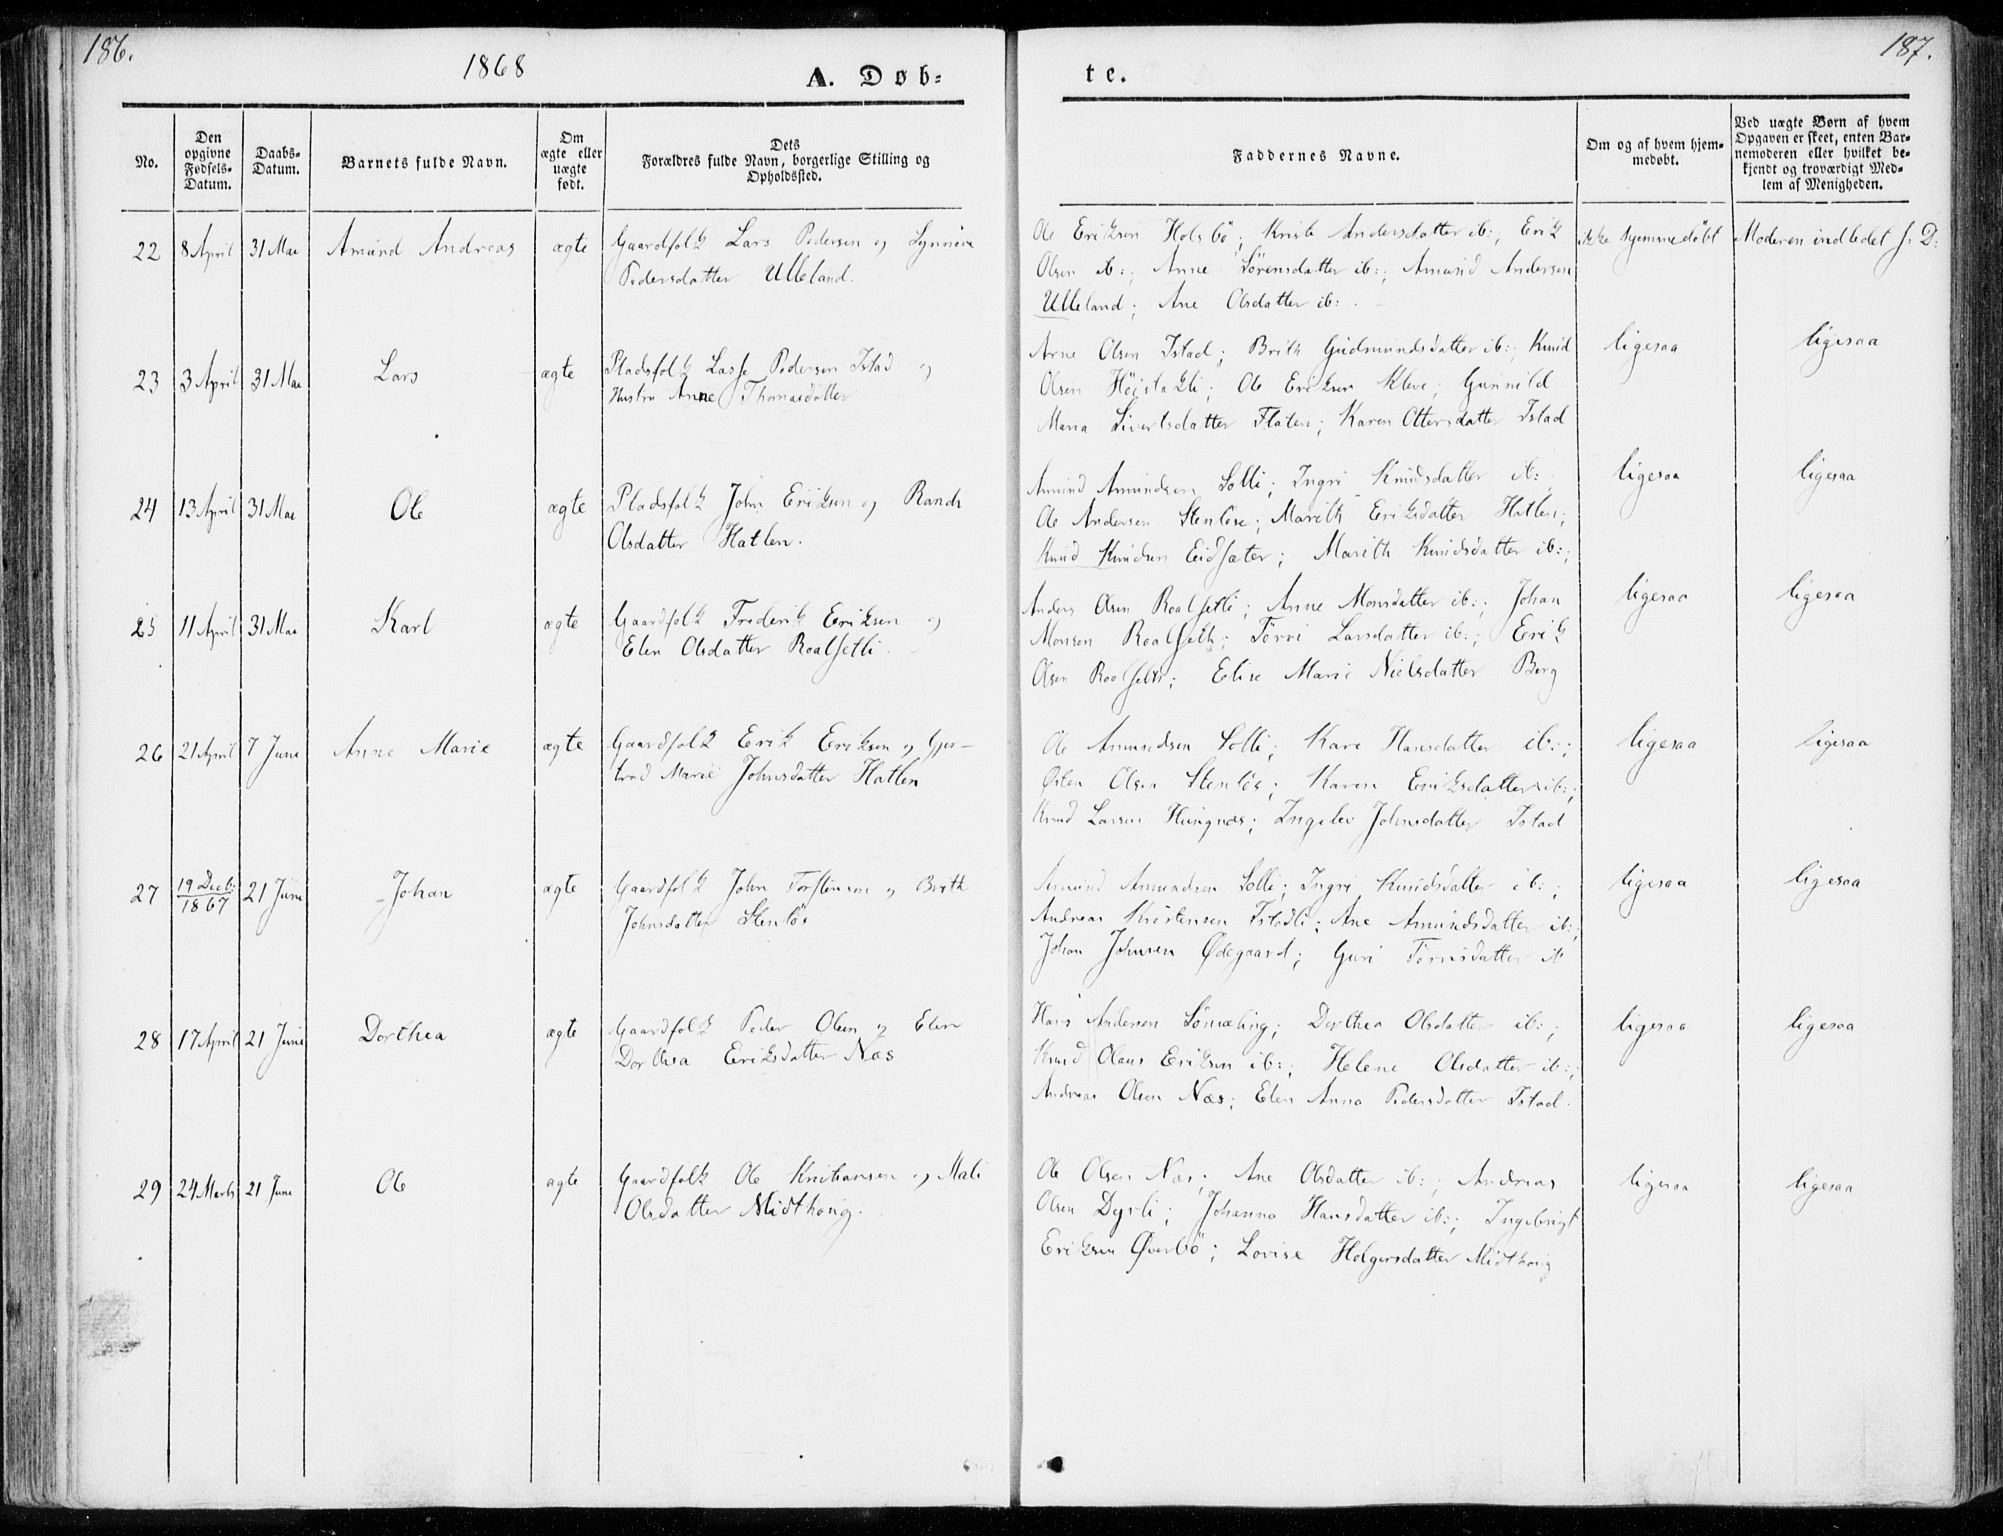 186.
1868
A. Døb-
te.
187.
No.
Den opgivne Fødsels-Datum.
Daabs-Datum.
Barnets fulde Navn.
Om ægte eller uægte født.
Dets Forældres fulde Navn, borgerlige Stilling og Opholdssted.
Faddernes Navne.
Om og af hvem hjemmedøbt.
Ved uægte Børn af hvem Opgaven er skeet, enten Barnemoderen eller hvilket bekjendt og troværdigt Medlem af Menigheden.
22 8 April 31 Mae Amund Andreas ægte Gaardfolk Lars Pedersen og Synnøve
Pedersdatter Ulleland.
Ole Eriksen Holsbö; Kristi Andersdatter ib:; Erik
Olsen ib:; Anne Sörensdatter ib:; Amund Andersen
Ulleland; Ane Olsdatter ib:.
ikke hjemmedöbt
Moderen indledet s: D:
23 3 April 31 Mae Lars ægte Pladsfolk Lasse Pedersen Istad og
Hustru Anne Thomasdatter
Arne Olsen Istad; Brith Gudmundsdatter ib:; Knud
Olsen Höistakli; Ole Eriksen Kleve; Gunnild
Maria Sivertsdatter Flaten; Karen Ottersdatter Istad
ligesaa
ligesaa
24 13 April 31 Mae Ole ægte Pladsfolk John Eriksen og Randi
Olsdatter Hatlen.
Amund Amundsen Solli; Ingri Knudsdatter ib:;
Ole Andersen Stenlöse; Marith Eriksdatter Hatlen;
Knud Knudsen Eidsæter; Marith Knudsdatter ib:;
ligesaa
ligesaa
25 11 April 31 Mae Karl ægte Gaardfolk Frederik Eriksen og
Elen Olsdatter Roalsetli.
Anders Olsen Roalsetli; Anne Monsdatter ib:; Johan
Monsen Roalseth; Törri Larsdatter ib:; Erik
Olsen Roalseth; Elise Marie Nielsdatter Berg
ligesaa
ligesaa
26 21 April 7 Juni Anne Marie ægte Gaardfolk Erik Eriksen og Gjer-
trud Marie Johnsdatter Hatlen
Ole Amundsen Solli; Kari Hansdatter ib:;
Østen Olsen Stenlös; Karen Eriksdatter ib:;
Knud Larsen Hungnæs; Ingelev Johnsdatter Istad
ligesaa
ligesaa
27 19 Decb: 1867 21 Juni Johan ægte Gaardfolk John Torstensen og Brith
Johnsdatter Stenlös
Amund Amundsen Solli; Ingri Knudsdatter ib:;
Andreas Kristensen Istadli; Ane Amundsdatter ib:;
Johan Johnsen Ødegaard; Guri Törrisdatter ib
ligesaa
ligesaa
28 17 April 21 Juni Dorthea ægte Gaardfolk Peder Olsen og Elen
Dorthea Eriksdatter Næs
Hans Andersen Sömæling; Dorthea Olsdatter ib:;
Knud Olaus Eriksen ib:; Helene Olsdatter ib:;
Andreas Olsen Næs; Elen Anna Pedersdatter Istad.
ligesaa
ligesaa
29 24 Marts 21 Juni Ole ægte Gaardfolk Ole Kristiansen og Mali
Olsdatter Midthoug.
Ole Olsen Næs; Ane Olsdatter ib:; Andreas
Olsen Dyrli; Johanna Hansdatter ib:; Ingebrigt
Eriksen Øverbö; Lovise Holgersdatter Midthoug
ligesaa
ligesaa